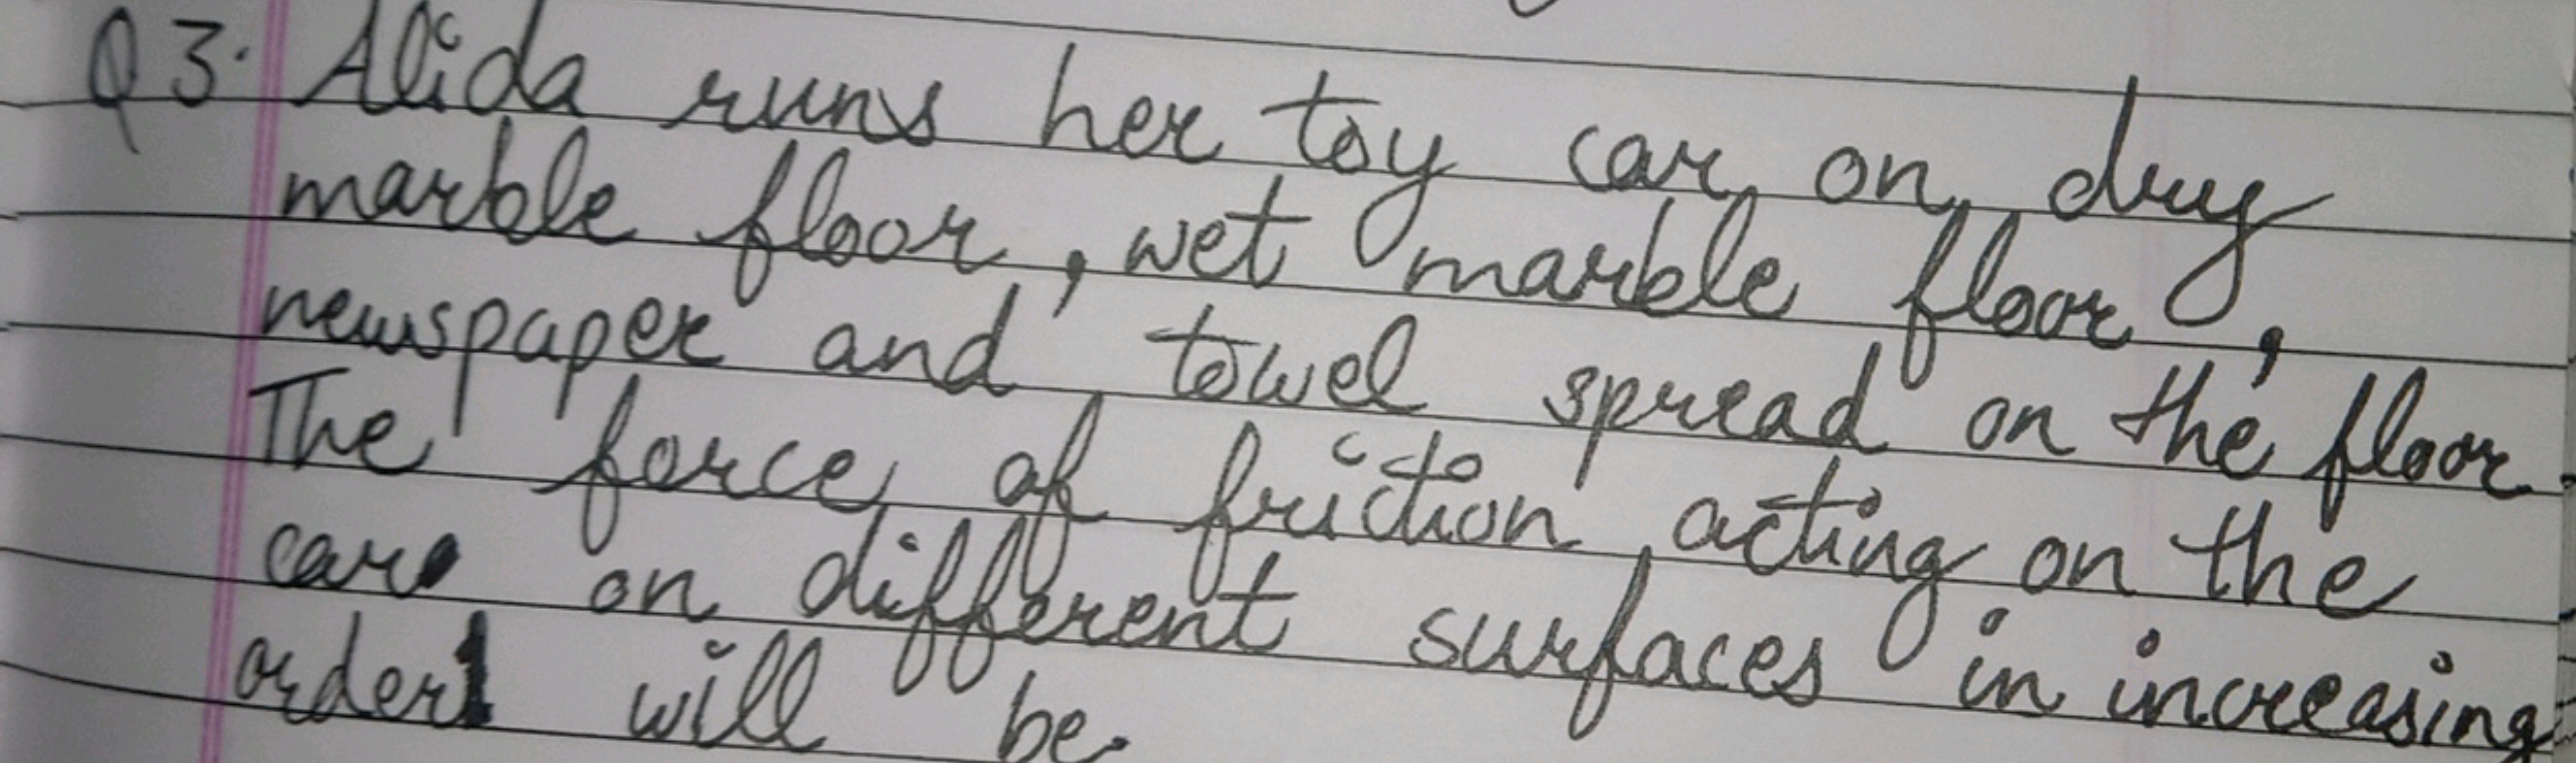 Q3. Alida runs her toy car on dry
marble floor, wet marble floor,
newspaper and towel spread on the floor.
The force of friction acting on the
car on different surfaces in increasing
order will be.